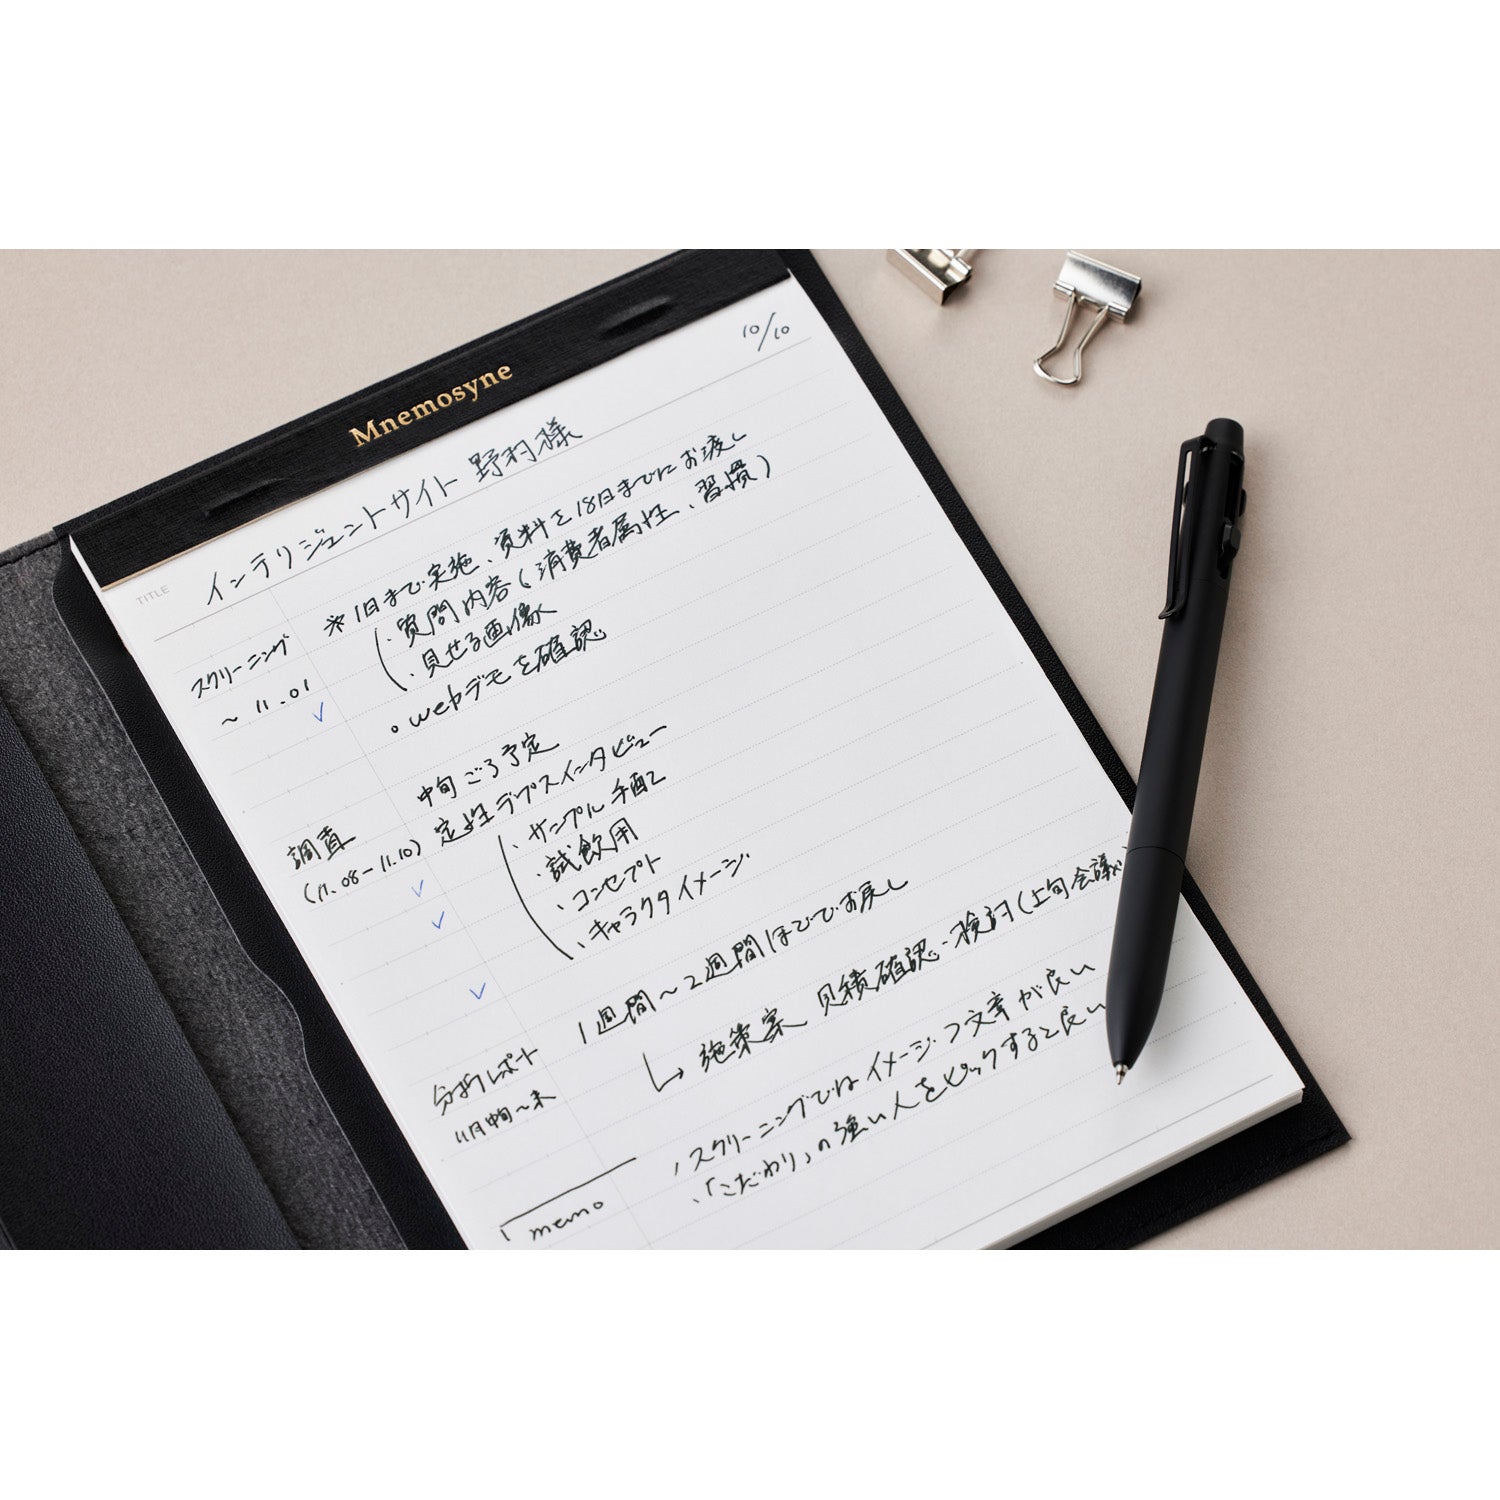 Mnemosyne
10/10
TITLE
インテリジェントサイト 野村様
スクリーニング
～11.01
※1日まで実施、資料を18日までにお渡し
・質問内容(消費者属性、習慣)
・見せる画像
。webデモを確認
中旬ごろ予定
調査
(11.08-11.10)
定性デプスインタビュー
・サンプル手配
・試飲用
・コンセプト
・キャラクタイメージ
1週間～2週間ほどでお戻し
分析レポート
11月中旬～末
↳施策案 見積確認・検討(上旬会議
memo
・スクリーニングではイメージ・フ文章が良い
・「こだわり」の強い人をピックすると良い